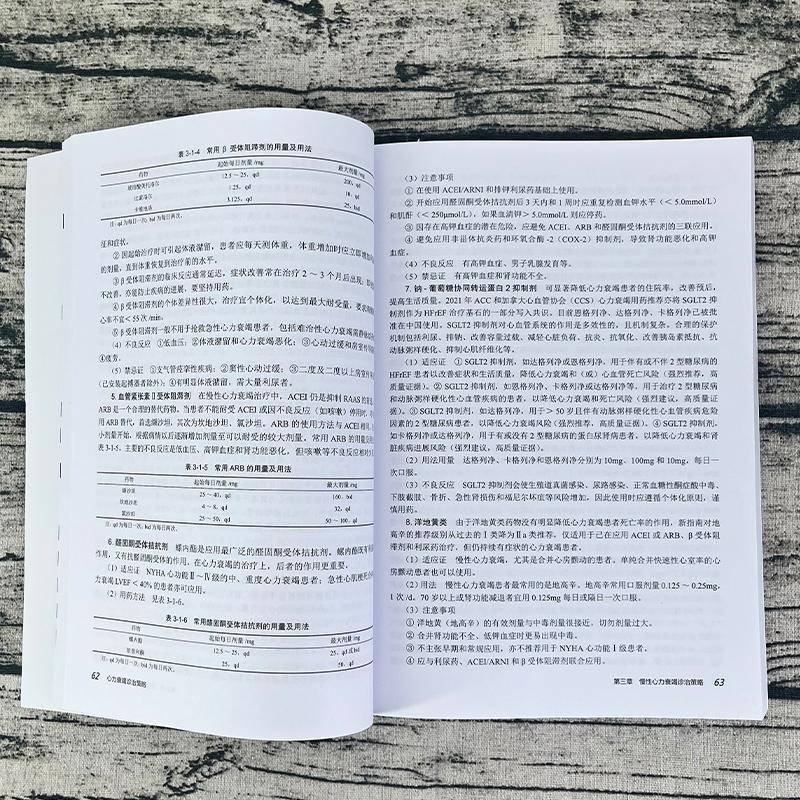 表 3-1-4 常用 β 受体阻滞剂的用量及用法
药物 起始每日剂量 /mg 最大剂量/mg
琥珀酸美托洛尔 12.5～25，qd 200，qd
比索洛尔 1.25，qd 10，qd
卡维地洛 3.125，qd 25，bid
注：qd 为每日一次，bid 为每日两次。
征和症状。
② 因起始治疗时可引起体液潴留，患者应每天测体重，体重增加时应立即增加
的剂量，直到体重恢复到治疗前的水平。
③ β 受体阻滞剂的临床反应通常延迟，症状改善常在治疗 2～3 个月后出现；即使
不改善，亦能防止疾病的进展，要坚持用药。
④ β 受体阻滞剂的个体差异性很大，治疗宜个体化，以达到最大耐受量，要求
心率不宜＜55 次 /min。
⑤ β 受体阻滞剂一般不用于抢救急性心力衰竭患者，包括难治性心力衰竭需静脉
（4）不良反应 ①低血压；②体液潴留和心力衰竭恶化；③心动过缓和房室传导
④疲劳。
（5）禁忌证 ①支气管痉挛性疾病；②窦性心动过缓；③二度及二度以上房室
（已安装起搏器者除外）；④有明显体液潴留，需大量利尿者。
5. 血管紧张素Ⅱ受体阻滞剂 在慢性心力衰竭治疗中，ACEI 仍是抑制 RAAS 的首
ARB 是一个合理的替代药物。当患者不能耐受 ACEI 或因不良反应（如咳嗽）停用时，可
用 ARB 替代，首选缬沙坦，其次为坎地沙坦、氯沙坦。ARB 的使用方法与 ACEI 相同，
小剂量开始，根据病情以后逐渐增加剂量至可以耐受的较大剂量，常用 ARB 的用量及用法
表 3-1-5。主要的不良反应是低血压、高钾血症和肾功能恶化，但咳嗽等不良反应相对
表 3-1-5 常用 ARB 的用量及用法
药物 起始每日剂量 /mg 最大剂量/mg
缬沙坦 25～40，qd 160，bid
坎地沙坦 4～8，qd 32，qd
氯沙坦 25～50，qd 50～100，qd
注：qd 为每日一次；bid 为每日两次。
6. 醛固酮受体拮抗剂 螺内酯是应用最广泛的醛固酮受体拮抗剂。螺内酯既有利尿
作用，又有抗醛固酮受体的作用，在心力衰竭的治疗上，后者的作用更重要。
（1）适应证 NYHA 心功能Ⅱ～Ⅳ级的中、重度心力衰竭患者；急性心肌梗死
力衰竭 LVEF＜40% 的患者亦可应用。
（2）用药方法 见表 3-1-6。
表 3-1-6 常用醛固酮受体拮抗剂的用量及用法
药物 起始每日剂量 /mg 最大剂量 /mg
螺内酯 12.5～25，qd 25，qd 或 bid
依普利酮 25，qd 50，qd
注：qd 为每日一次；bid 为每日两次。
62 心力衰竭诊治策略
（3）注意事项
① 在使用 ACEI/ARNI 和排钾利尿药基础上使用。
② 开始应用醛固酮受体拮抗剂后 3 天内和 1 周时应重复检测血钾水平（＜5.0mmol/L）
和肌酐（＜250μmol/L），如果血清钾＞5.0mmol/L 则应停药。
③ 因存在高钾血症的潜在危险，应避免 ACEI、ARB 和醛固酮受体拮抗剂的三联应用。
④ 避免应用非甾体抗炎药和环氧合酶 -2（COX-2）抑制剂，导致肾功能恶化和高钾
血症。
（4）不良反应 有高钾血症、男子乳腺发育等。
（5）禁忌证 有高钾血症和肾功能不全。
7. 钠 - 葡萄糖协同转运蛋白 2 抑制剂 可显著降低心力衰竭患者的住院率，改善预后，
提高生活质量。2021 年 ACC 和加拿大心血管协会（CCS）心力衰竭用药推荐亦将 SGLT2
抑制剂作为 HFrEF 治疗基石的一部分写入共识。目前恩格列净、达格列净、卡格列净已被批
准在中国使用。SGLT2 抑制剂对心血管系统的作用是多效性的，且机制复杂。合理的保护
机制包括利尿、排钠、改善容量过载、减轻心脏负荷、抗炎、抗氧化、改善胰岛素抵抗、抗
动脉粥样硬化、抑制心肌纤维化等。
（1）适应证 ① SGLT2 抑制剂，如达格列净或恩格列净，用于伴有或不伴 2 型糖尿病的
HFrEF 患者以改善症状和生活质量，降低心力衰竭和（或）心血管死亡风险（强烈推荐，高
质量证据）。② SGLT2 抑制剂，如恩格列净、卡格列净或达格列净等，用于治疗 2 型糖尿病
和动脉粥样硬化性心血管疾病的患者，以降低心力衰竭和死亡风险（强烈建议，高质量证
据）。③ SGLT2 抑制剂，如达格列净，用于＞50 岁且伴有动脉粥样硬化性心血管疾病危险
因素的 2 型糖尿病患者，以降低心力衰竭风险（强烈推荐，高质量证据）。④ SGLT2 抑制剂，
如卡格列净或达格列净，用于有或没有 2 型糖尿病的蛋白尿肾病患者，以降低心力衰竭和肾
脏疾病进展风险（强烈建议，高质量证据）。
（2）用法用量 达格列净、卡格列净和恩格列净分别为 10mg、100mg 和 10mg，每日一
次口服。
（3）不良反应 SGLT2 抑制剂会使生殖道真菌感染、尿路感染、正常血糖性酮症酸中毒、
下肢截肢、骨折、急性肾损伤和福尼尔坏疽等风险增加，因此使用时应遵循个体化原则，谨
慎用药。
8. 洋地黄类 由于洋地黄类药物没有明显降低心力衰竭患者死亡率的作用，新指南对地
高辛的推荐级别从过去的Ⅰ类降为Ⅱa 类推荐。仅适用于已在应用 ACEI 或 ARB、β 受体阻
滞剂和利尿药治疗，但仍持续有症状的心力衰竭患者。
（1）适应证 慢性心力衰竭，尤其是合并心房颤动的患者。单纯合并快速性心室率的心
房颤动患者也可以使用。
（2）用法 慢性心力衰竭患者最常用的是地高辛。地高辛常用口服剂量 0.125～0.25mg，
1 次 /d。70 岁以上或肾功能减退者宜用 0.125mg 每日或隔日一次口服。
（3）注意事项
① 洋地黄（地高辛）的有效剂量与中毒剂量很接近，切勿剂量过大。
② 合并肾功能不全、低钾血症时更易出现中毒。
③ 不主张早期和常规应用，亦不推荐用于 NYHA 心功能Ⅰ级患者。
④ 应与利尿药、ACEI/ARNI 和 β 受体阻滞剂联合应用。
第三章 慢性心力衰竭诊治策略 63